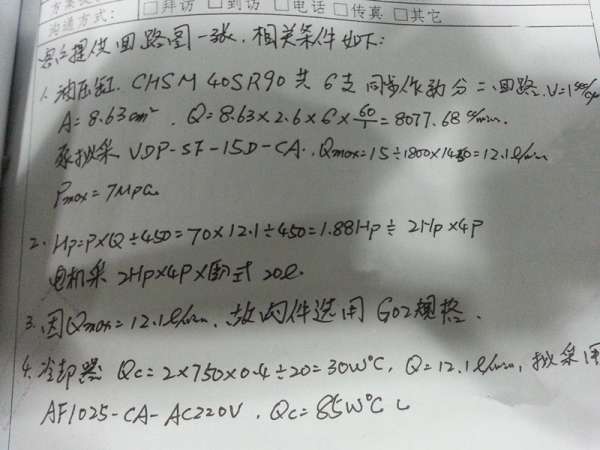 沟通方式： □拜访 □到访 □电话 □传真 □其它
客户提供回路图一张，相关条件如下：
1. 油压缸. CHSM 40SR90 共 6支 同步作动 分二回路. V=1
A=8.63cm². Q=8.63×2.6×6×60/1=8077.68 cc/min.
泵拟采 VDP-SF-15D-CA. Qmax=15÷1800×1450=12.1 l/min
Pmax=7Mpa
2. Hp=P×Q÷450=70×12.1÷450=1.88Hp ≑ 2Hp×4P
电机采 2Hp×4P×卧式 20l.
3. 因Qmax=12.1l/min. 故阀件选用 G02规格.
4. 冷却器 Qc=2×750×0.4÷20=30W/°C, Q=12.1l/min, 拟采用
AF1025-CA-AC220V. Qc=85W/°C